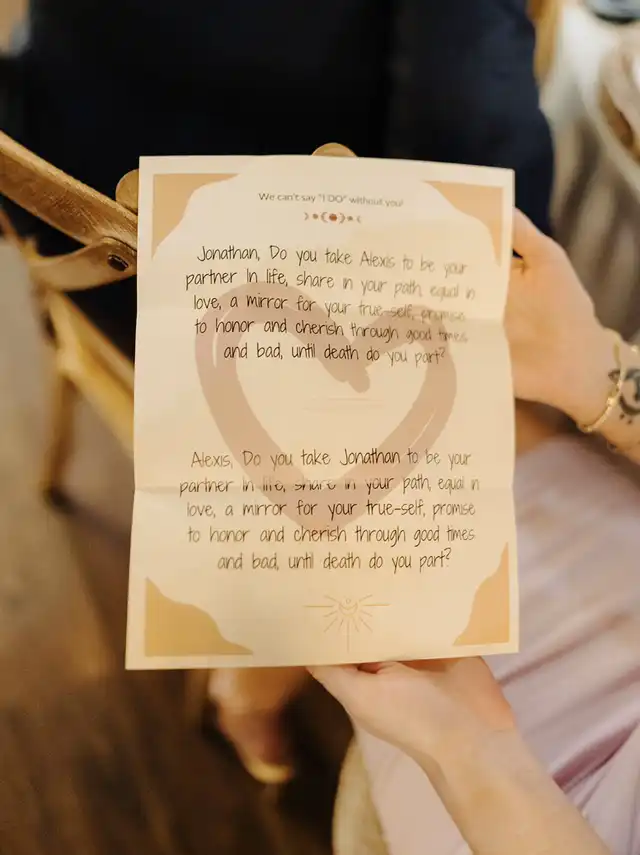 We can't say "I DO" without you!
Jonathan, Do you take Alexis to be your
partner in life, share in your path, equal in
love, a mirror for your true-self, promise
to honor and cherish through good times
and bad, until death do you part?
Alexis, Do you take Jonathan to be your
partner in life, share in your path, equal in
love, a mirror for your true-self, promise
to honor and cherish through good times
and bad, until death do you part?